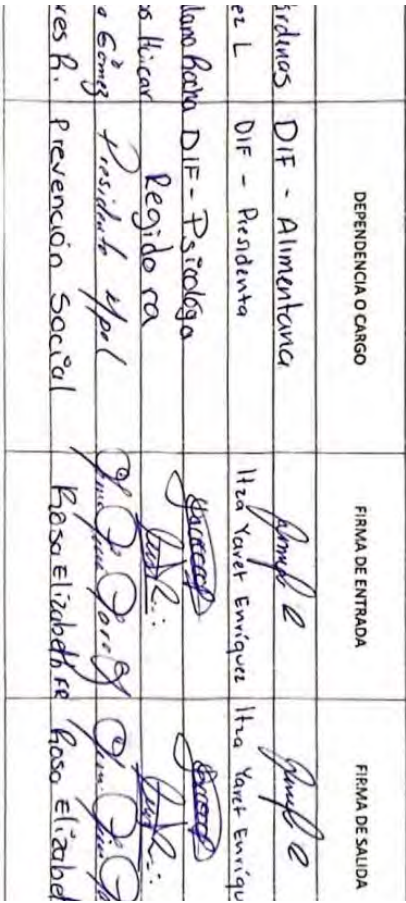 DEPENDENCIA O CARGO FIRMA DE ENTRADA FIRMA DE SALIDA
rdenas DIF - Alimentaria
ez L DIF - Presidenta Itza Yaret Enriquez Itza Yaret Enriqu
DIF - Psicóloga
Regidora
a Gómez Presidente Mpal
res R. Prevención Social Rosa Elizabeth FR Rosa Elizabe